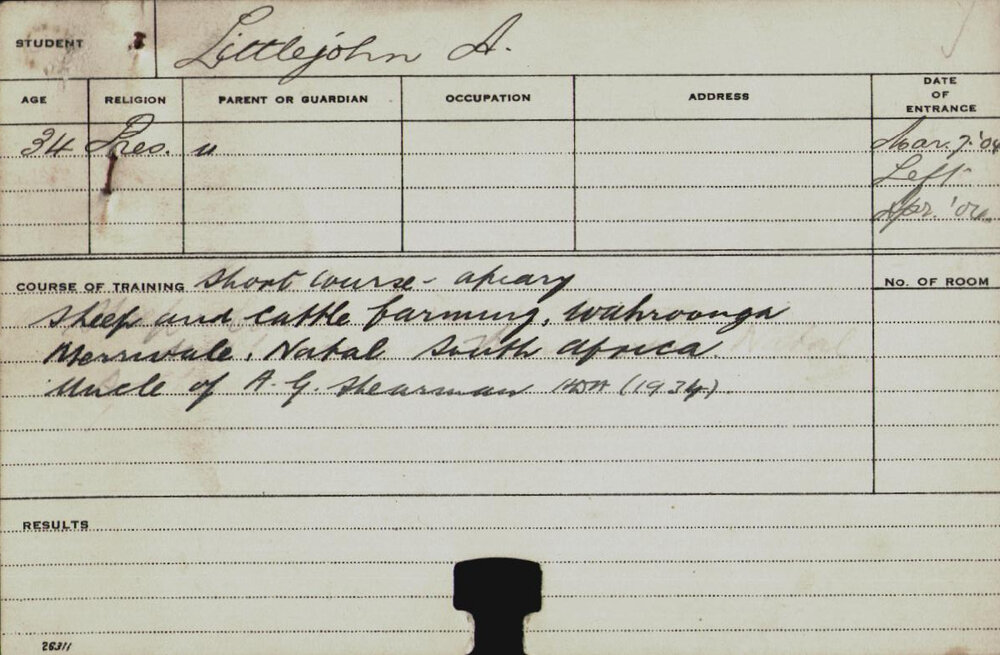 STUDENT Littlejohn A.
AGE RELIGION PARENT OR GUARDIAN OCCUPATION ADDRESS DATE OF ENTRANCE
34 Pres. " Mar. 7. '04
Left
Apr. '04
COURSE OF TRAINING Short course - apiary
No. OF ROOM
Sheep and Cattle farming, Wahroonga
Merrivale, Natal South Africa
Uncle of A. G. Shearman HDA (1934)
RESULTS
26311